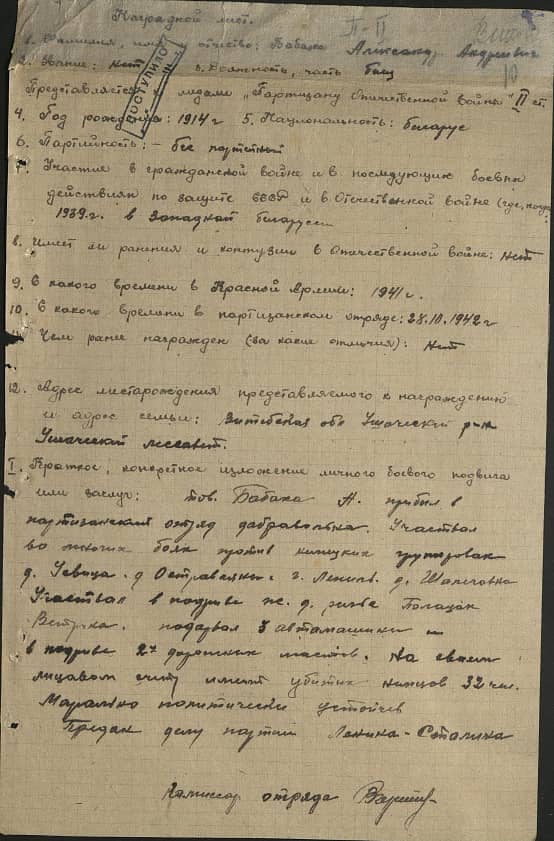 Наградной лист.
П-II
1. Фамилия, имя, отчество: Бабака Александр Андреевич
2. Звание: нет 3. Должность, часть боец
ПОСТУПИЛО
Представляется к медали "Партизану Отечественной войны" II ст.
4. Год рождения: 1914 г 5. Национальность: беларус
6. Партийность: - бес партейный
Участие в гражданской войне и в последующих боевых
действиях по защите СССР и в Отечественной войне (где, когда
1939.г. в Западной Беларуссии
8. Имеет ли ранения и контузии в Отечественной войне: Нет
9. С какого времени в Красной Армии: 1941 г.
10. С какого времени в партизанском отряде: 28.10.1942 г
Чем ранее награжден (за какие отличия): Нет
12. Адрес месторождения представляемого к награждению
и адрес семьи: Витебская обл Ушачский р-н
Ушачский сельсовет.
I. Краткое, конкретное изложение личного боевого подвига
или заслуг: тов. Бабака А. прибыл в
партизанский отряд добравольна. Участвал
во многих боях против немецких групировак
д. д. г. Лепель. д.
Участвал в подриве ж. д. линье Полацак
подарвал 3 автамашини
в подриве 2х дорожных мастов. На своем
лицавом счету имеит убитих немцов 32 чел.
Маральна политически устойчев
Предан делу партии Ленина-Сталина
Комиссар отряда